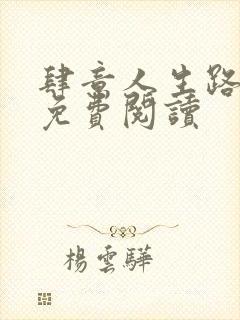 肆意人生路
免費閱讀
楊雲驊